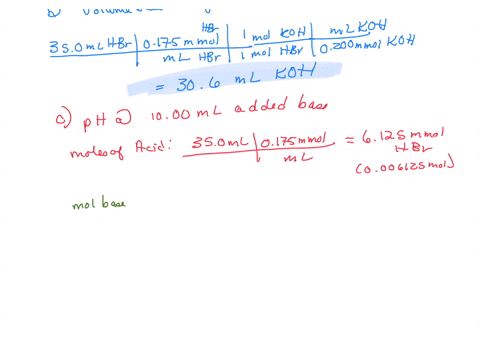 b) Volume
HBr
35.0 mL HBr | 0.175 mmol | 1 mol KOH | mL KOH
mL HBr | 1 mol HBr | 0.200 mmol KOH
= 30.6 mL KOH
c) pH @ 10.00 mL added base
moles of Acid: 35.0 mL | 0.175 mmol = 6.125 mmol
mL HBr
(0.006125 mol)
mol base